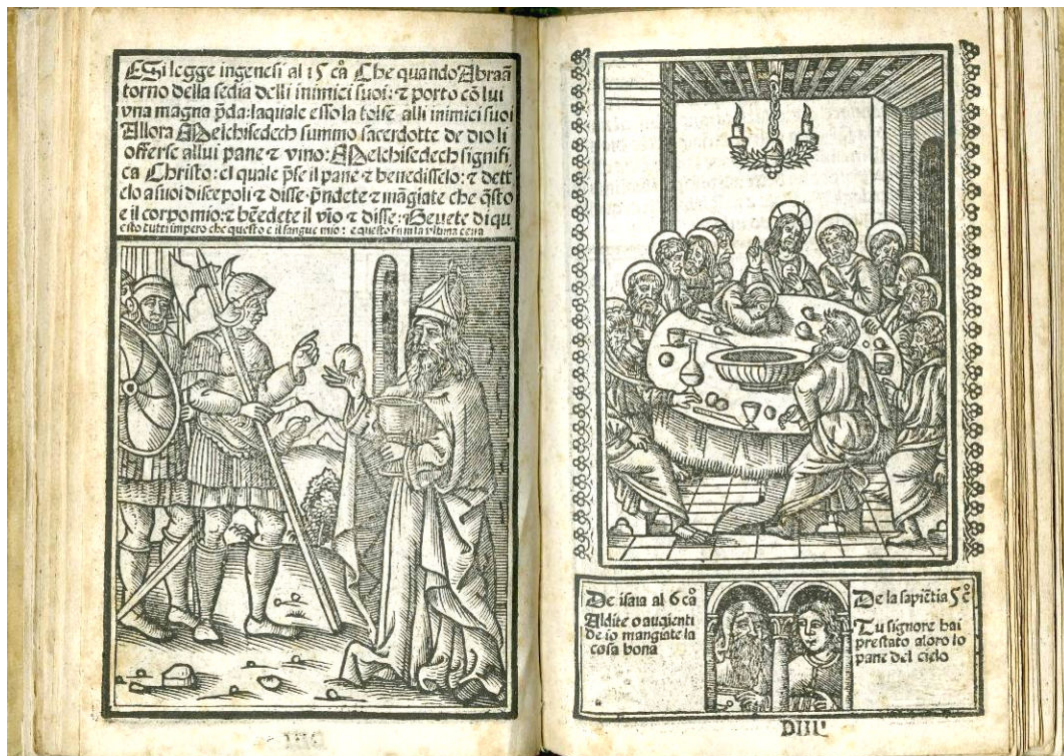 ESi legge ingenesi al 15 cã Che quando Abraã
torno della sedia delli inimici suoi: ⁊ porto cõ lui
vna magna p̃da: laquale esso la tolse alli inimici suoi
Allora Melchisedech summo sacerdotte de dio li
offerse allui pane ⁊ vino: Melchisedech signifi
ca Christo: el quale p̃se il pane ⁊ benedisselo: ⁊ dett
elo a suoi discepoli ⁊ disse. p̃ndete ⁊ mãgiate che q̃sto
e il corpo mio: ⁊ bẽedete il vĩo ⁊ disse: Beuete di qu
esto tutti impero che questo e il sangue mio: e questo fu in la vltima cena
De isaia al 6 cã
Aldite o auqienti
de io mangiate la
cosa bona
De la sapiẽtia 5 c̃
Tu signore hai
prestato aloro lo
pane del cielo
DIIII